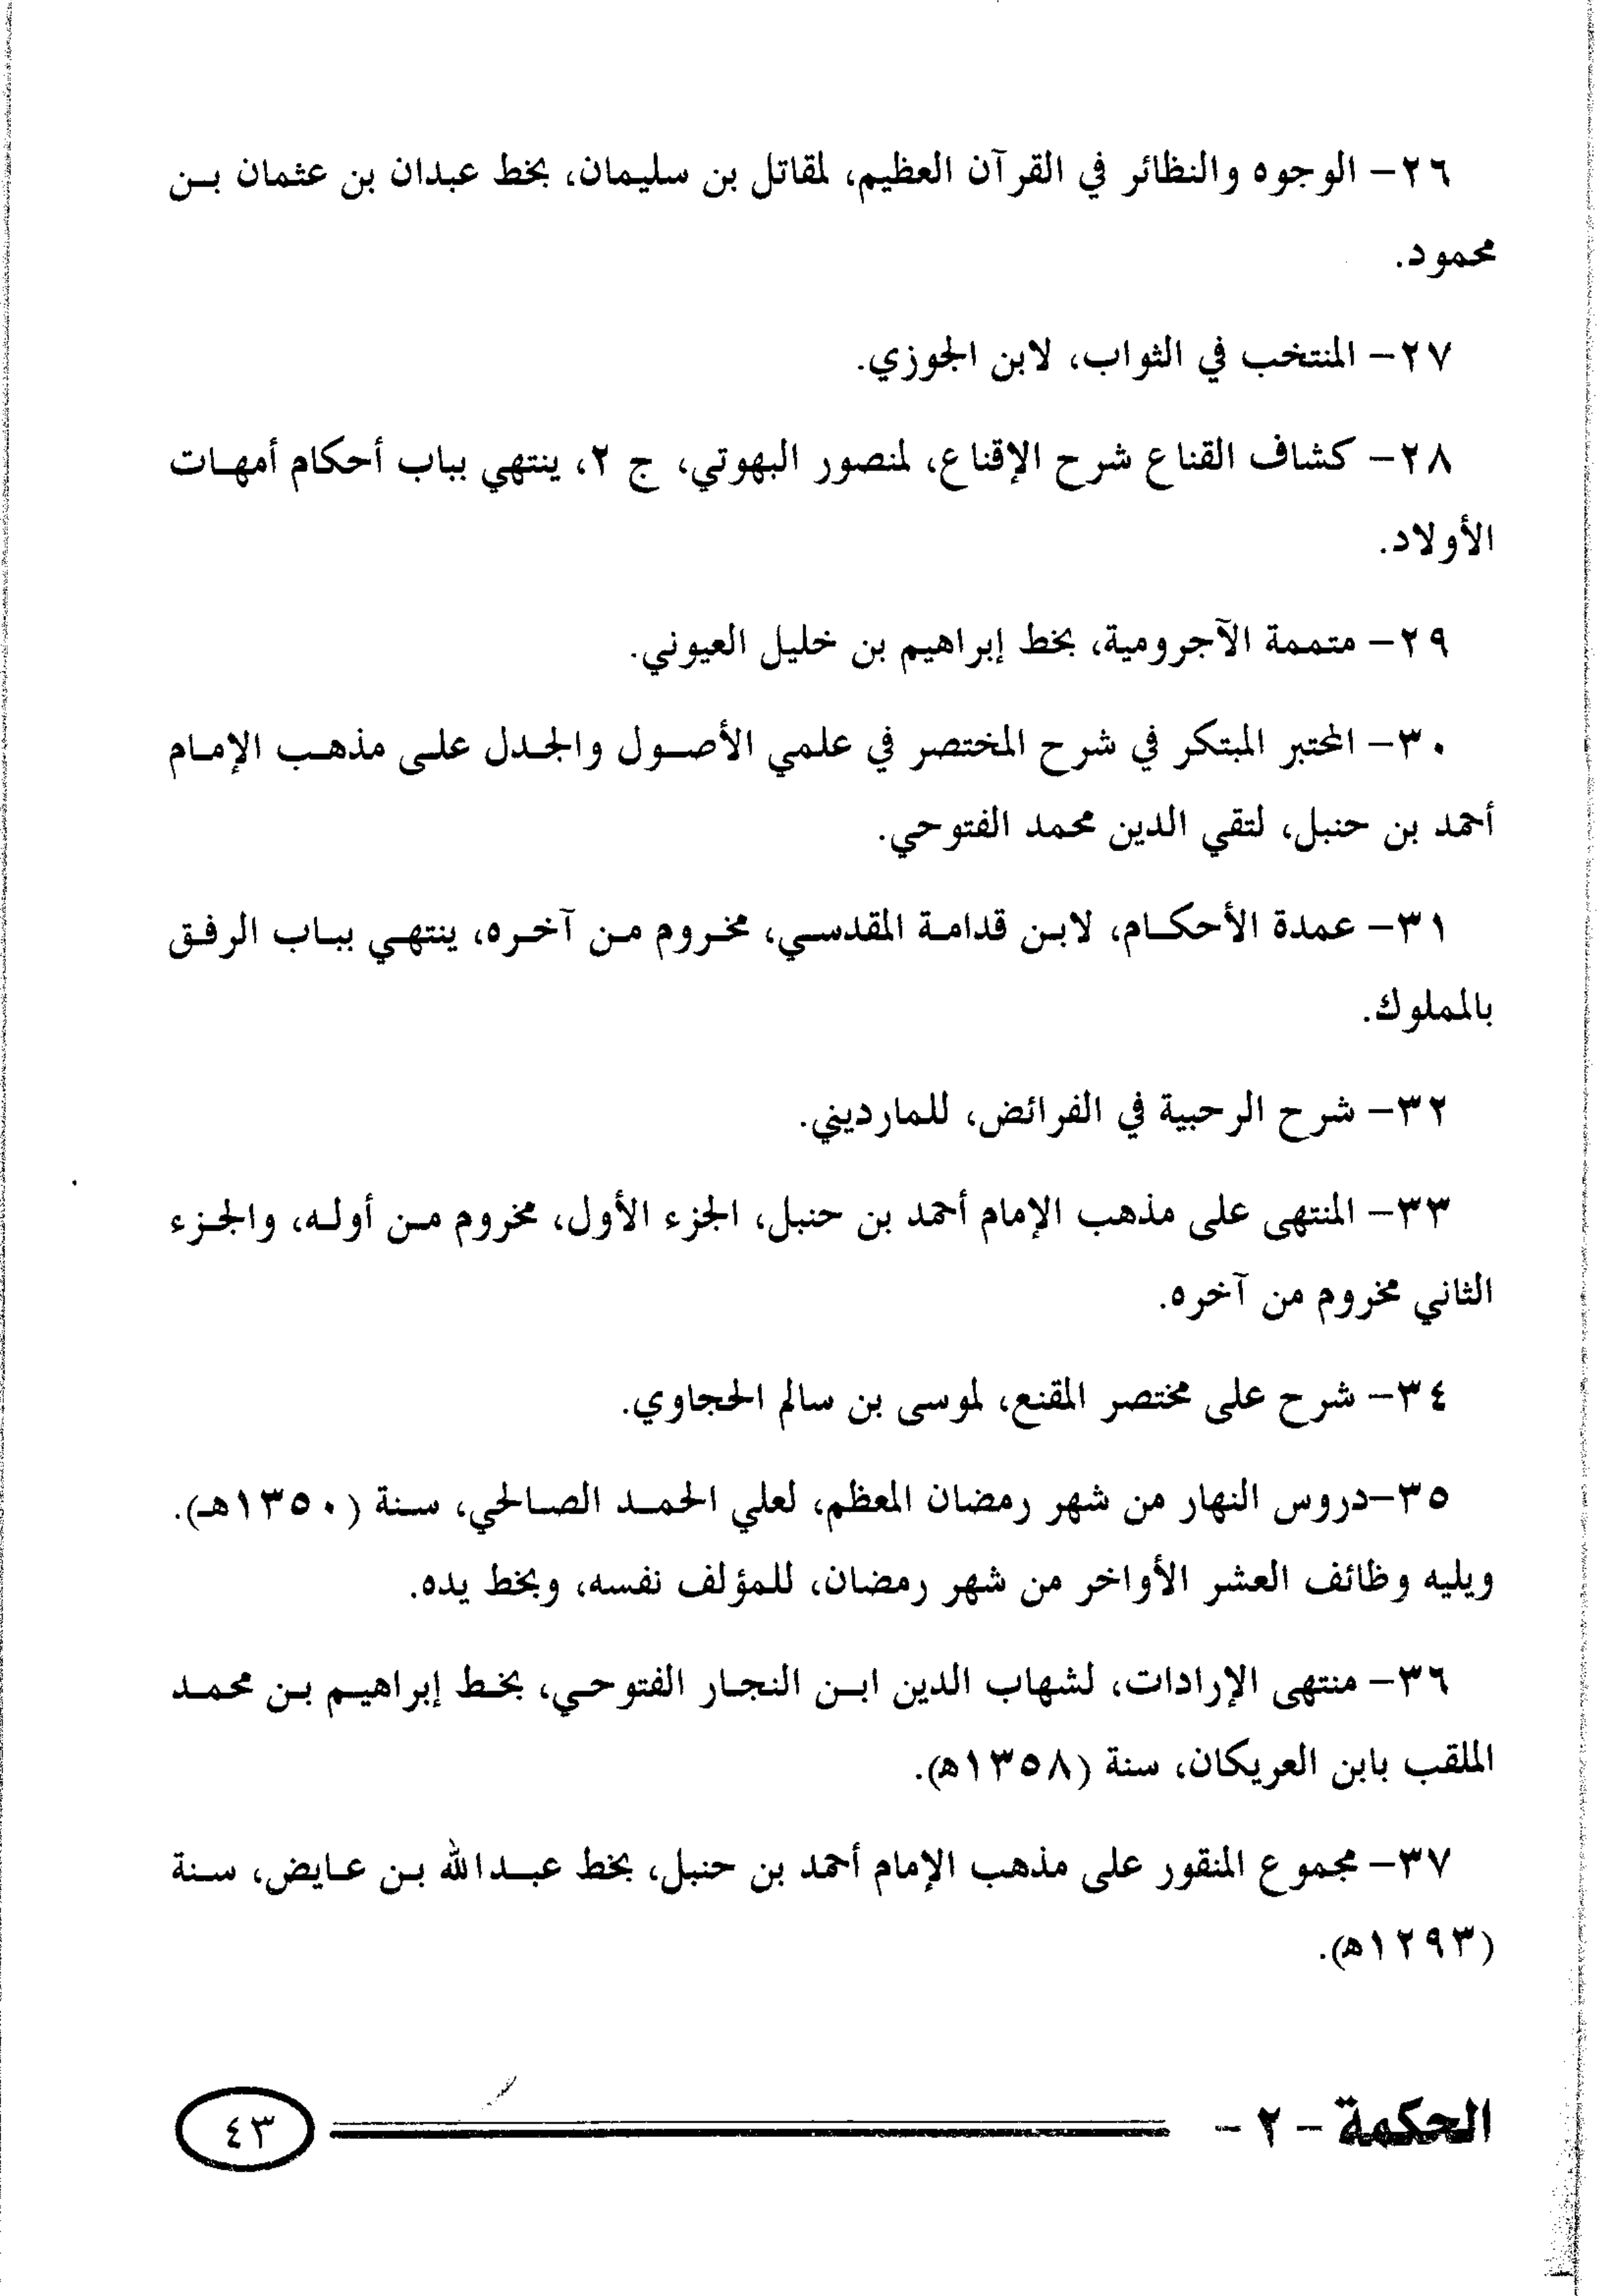 ٢٦- الوجوه والنظائر في القرآن العظيم، لمقاتل بن سليمان، بخط عبدان بن عثمان بن
محمود.
٢٧- المنتخب في الثواب، لابن الجوزي.
٢٨- كشاف القناع شرح الإقناع، لمنصور البهوتي، ج ٢، ينتهي بباب أحكام أمهات
الأولاد.
٢٩- متممة الآجرومية، بخط إبراهيم بن خليل العيوني.
٣٠- المختبر المبتكر في شرح المختصر في علمي الأصول والجدل على مذهب الإمام
أحمد بن حنبل، لتقي الدين محمد الفتوحي.
٣١- عمدة الأحكام، لابن قدامة المقدسي، مخروم من آخره، ينتهي بباب الرفق
بالمملوك.
٣٢- شرح الرحبية في الفرائض، للمارديني.
٣٣- المنتهى على مذهب الإمام أحمد بن حنبل، الجزء الأول، مخروم من أوله، والجزء
الثاني مخروم من آخره.
٣٤- شرح على مختصر المقنع، لموسى بن سالم الحجاوي.
٣٥-دروس النهار من شهر رمضان المعظم، لعلي الحمد الصالحي، سنة (١٣٥٠هـ).
ويليه وظائف العشر الأواخر من شهر رمضان، للمؤلف نفسه، وبخط يده.
٣٦- منتهى الإرادات، لشهاب الدين ابن النجار الفتوحي، بخط إبراهيم بن محمد
الملقب بابن العريكان، سنة (١٣٥٨ه).
٣٧- مجموع المنقور على مذهب الإمام أحمد بن حنبل، بخط عبدالله بن عايض، سنة
(١٢٩٣ه).
الحكمة - ٢ -
٤٣